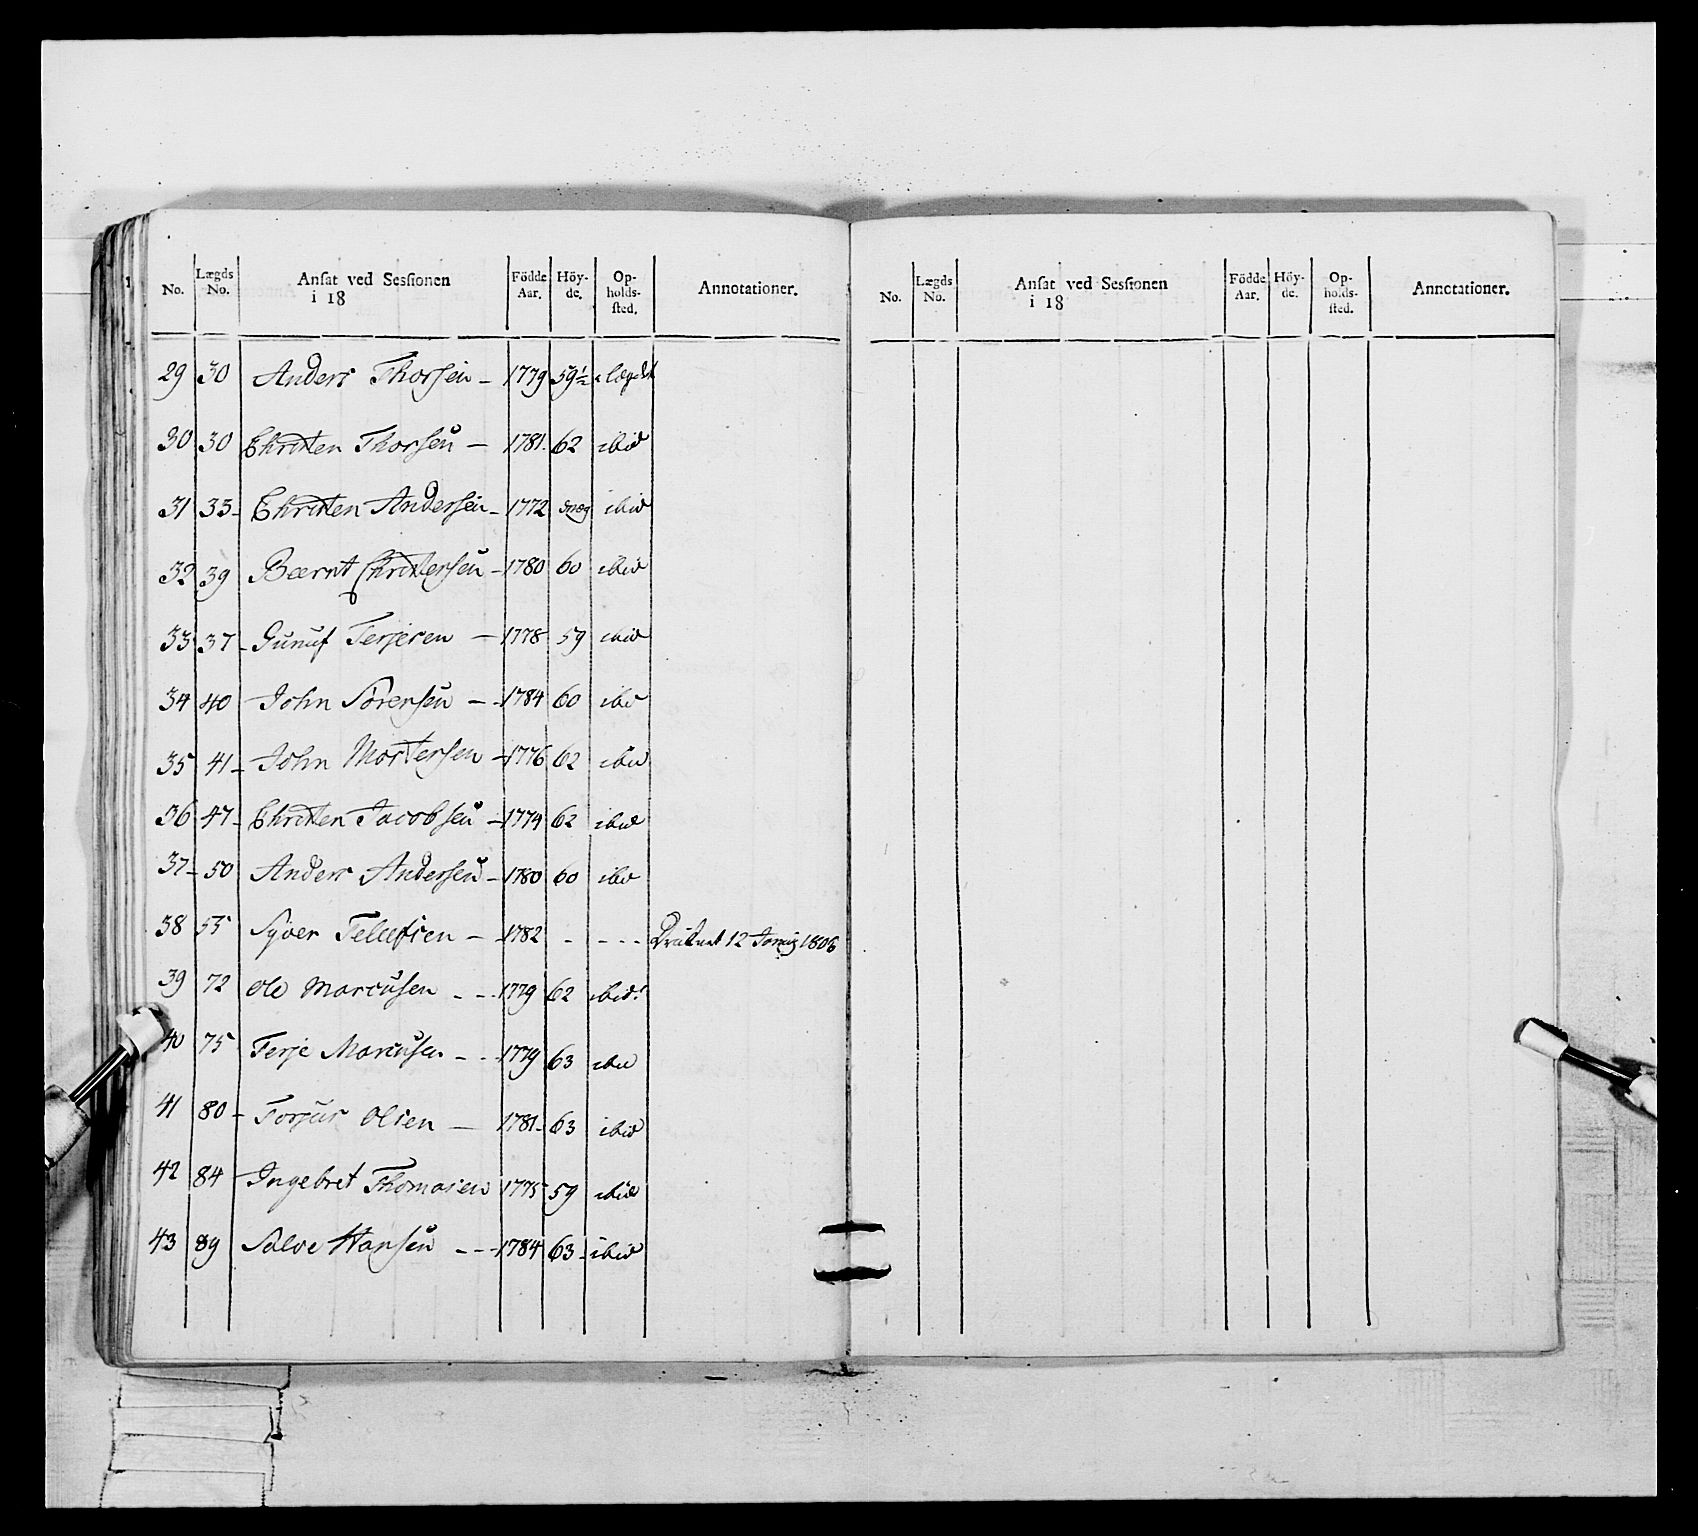 No. Lægds No. Ansat ved Sessionen i 18 Födde Aar. Höy-de. Op-holds-sted. Annotationer.
29 30 Anders Thorsen - 1779 59½ i Lægdet
30 30 Christen Thorsen - 1781. 62 ibid
31 33- Christen Andersen - 1772 ibid
32 39 Bærnt Christensen - 1780 60 ibid
33 37- Gunuf Terjesen - 1778 59 ibid
34 40 John Sörensen - - 1784 60 ibid
35 41- John Mortensen - 1776 62 ibid
36 47- Christen Jacobsen - 1774 62 ibid
37- 50 Anders Andersen - 1780 60 ibid
38 55 Syver - - 1782 - - - - Druknet 12 1806
39 72 Ole Marcusen - - - 1779 62 ibid:
40 75 Terje Marcusen - - - 1779 63 ibid
41 80- Torjus Olsen - 1781- 63 ibid
42 84 Ingebret Thomasen 1775 59 ibid
43 89 Salve Hansen - - - 1784 63- ibid
No. Lægds No. Ansat ved Sessionen i 18 Födde Aar. Höy-de. Op-holds-sted. Annotationer.